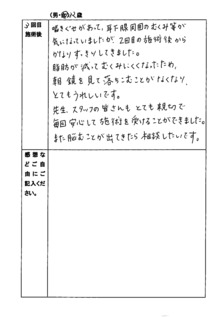 (男・女)  歳
9回目
施術後
噛みぐせがあって、耳下腺周囲のむくみ等が
気になっていましたが、2回目の施術後から
かなりすっきりしてきました。
脂肪が減ってむくみにくくなったため、
朝鏡を見て落ちこむことがなくなり、
とてもうれしいです。
先生、スタッフの皆さんもとても親切で
毎回安心して施術を受けることができました。
また悩むことが出てきたら相談したいです。
感想な
どご自
由にご
記入くだ
さい。